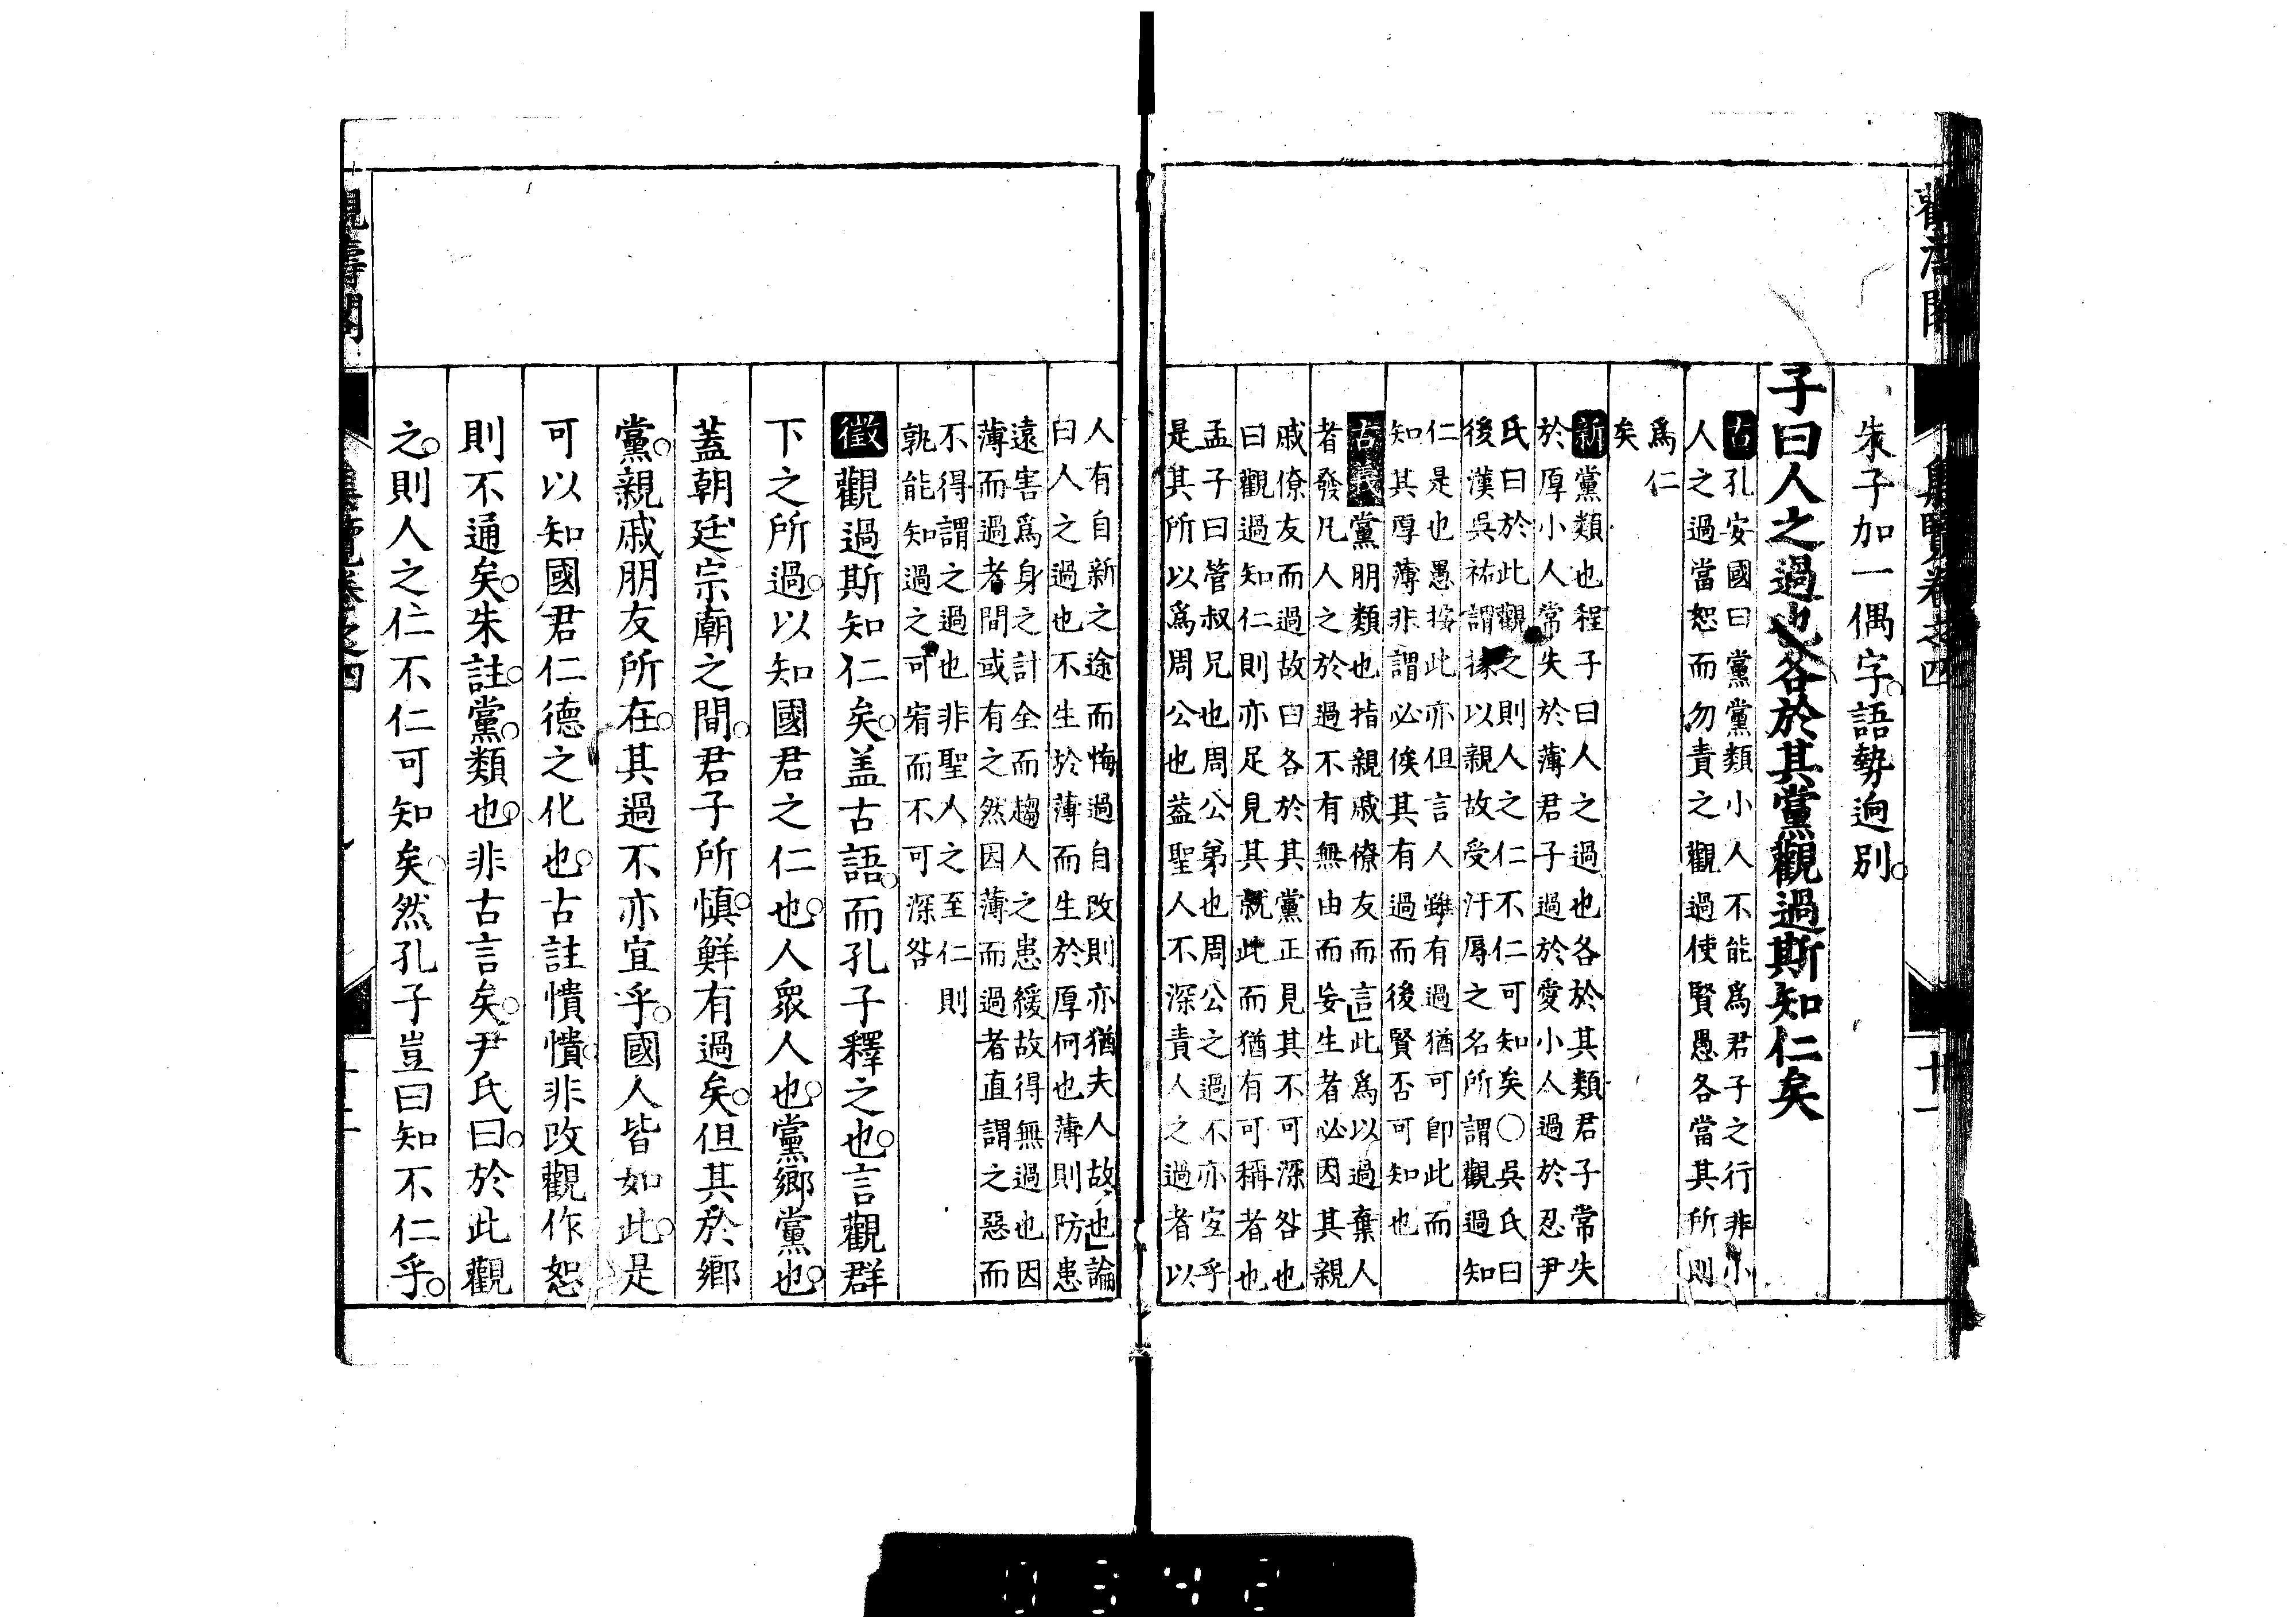 朱子加一偶字語勢逈別
子曰人之過也各於其黨觀過斯知仁矣
古孔安國曰黨黨類小人不能爲君子之行非小
人之過當恕而勿責之觀過使賢愚各當其所則
爲仁
矣
新黨類也程子曰人之過也各於其類君子常失
於厚小人常失於薄君子過於愛小人過於忍尹
氏曰於此觀之則人之仁不仁可知矣〇吳氏曰
後漢吳祐謂掾以親故受汙辱之名所謂觀過知
仁是也愚按此亦但言人雖有過猶可卽此而
知其厚薄非謂必俟其有過而後賢否可知也
古義黨朋類也指親戚僚友而言」此爲以過棄人
者發凡人之於過不有無由而妄生者必因其親
戚僚友而過故曰各於其黨正見其不可深咎也
曰觀過知仁則亦足見其就此而猶有可稱者也
孟子曰管叔兄也周公弟也周公之過不亦宜乎
是其所以爲周公也蓋聖人不深責人之過者以
人有自新之途而悔過自改則亦猶夫人故也」論
曰人之過也不生於薄而生於厚何也薄則防患
遠害爲身之計全而趨人之患緩故得無過也因
薄而過者間或有之然因薄而過者直謂之惡而
不得謂之過也非聖人之至仁則
孰能知過之可宥而不可深咎
徵觀過斯知仁矣盖古語而孔子釋之也言觀群
下之所過以知國君之仁也人衆人也黨鄉黨也
蓋朝廷宗廟之間君子所愼鮮有過矣但其於鄉
黨親戚朋友所在其過不亦宜乎國人皆如此是
可以知國君仁德之化也古註憒憒非改觀作恕
則不通矣朱註黨類也非古言矣尹氏曰於此觀
之則人之仁不仁可知矣然孔子豈曰知不仁乎
觀濤閣
集覽卷之四
0342